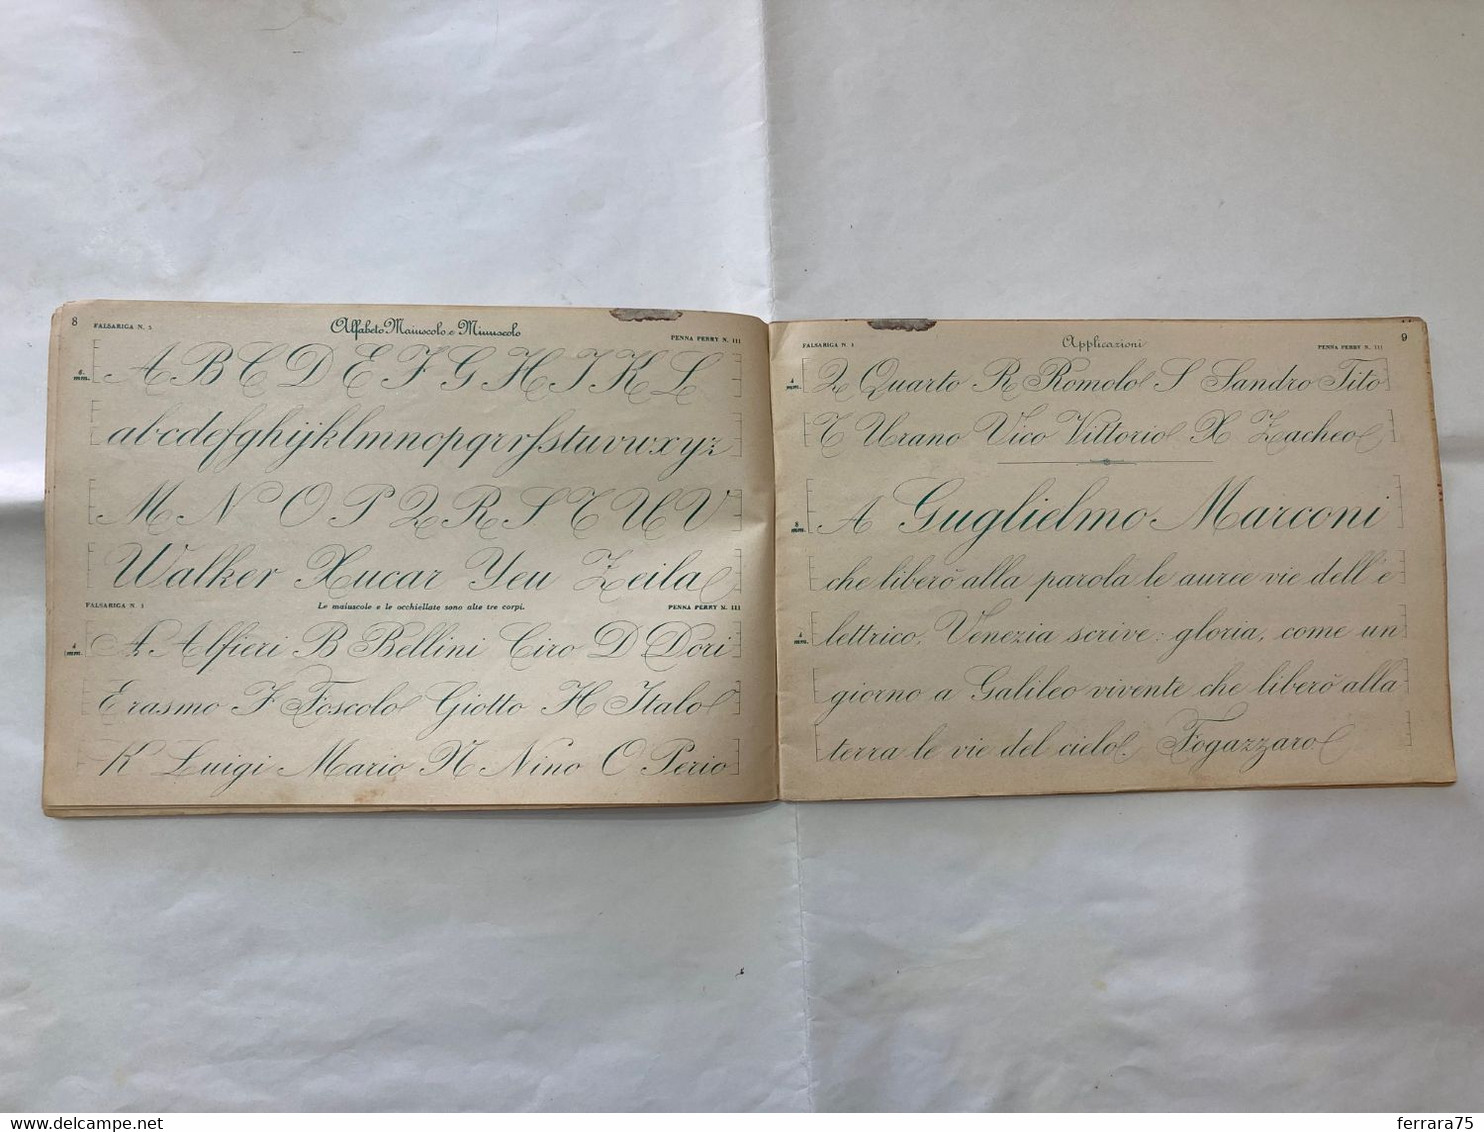 8
FALSARIGA N. 5
Alfabeto Maiuscolo e Minuscolo
PENNA PERRY N. 111
6 mm.
A B C D E F G H I K L
a b c d e f g h i j k l m n o p q r r s s t u v w x y z
M N O P Q R S T U V
Walker Xucar Yeu Zeila
FALSARIGA N. 3
Le maiuscole e le occhiellate sono alte tre corpi.
PENNA PERRY N. 111
4 mm.
A Alfieri B Bellini Ciro D Dori
Erasmo F Foscolo Giotto H Italo
K Luigi Mario N Nino O Perio
FALSARIGA N. 3
Applicazioni
PENNA PERRY N. 111
9
4 mm.
Q Quarto R Romolo S Sandro Tito
T Urano Vico Vittorio X Zacheo
8 mm.
A Guglielmo Marconi
che liberò alla parola le auree vie dell'e
4 mm.
lettrico, Venezia scrive: gloria, come un
giorno a Galileo vivente che liberò alla
terra le vie del cielo. Fogazzaro
delcampe.net
ferrara75